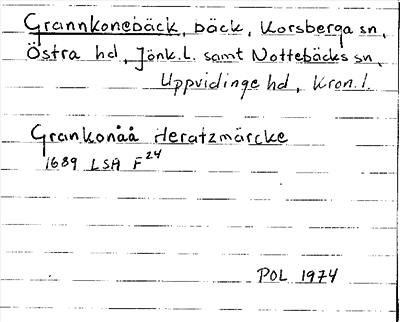 Grannkonebäck, bäck, Korsberga sn,
Östra hd, Jönk.l. samt Nottebäcks sn,
Uppvidinge hd, Kron.l.
Grankonåå Heratzmärcke
1689 LSA F24
POL 1974